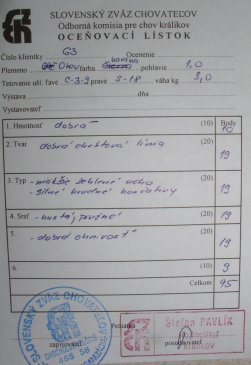 SLOVENSKÝ ZVÄZ CHOVATEĽOV
Odborná komisia pre chov králikov
OCEŇOVACÍ LÍSTOK
Číslo klietky G3 Ocenenie
Plemeno farba pohlavie 1,0
Tetovanie uší: ľavé C-3-9 pravé S-18 váha kg 3,0
Výstava dňa
Vystavovateľ
1. Hmotnosť dobrá (10) Body 10
2. Tvar dobrá línia (20) 19
3. Typ (20) 19
- silné hrudné končatiny
4. Srsť - hustá, pružná (20) 19
5. - dobrá (20) 19
6. (10) 9
Celkom 95
SLOVENSKÝ ZVÄZ CHOVATEĽOV
458 58
Pečiatka
zapisovateľ
Štefan PAVLÍK
posudzovateľ
králikov